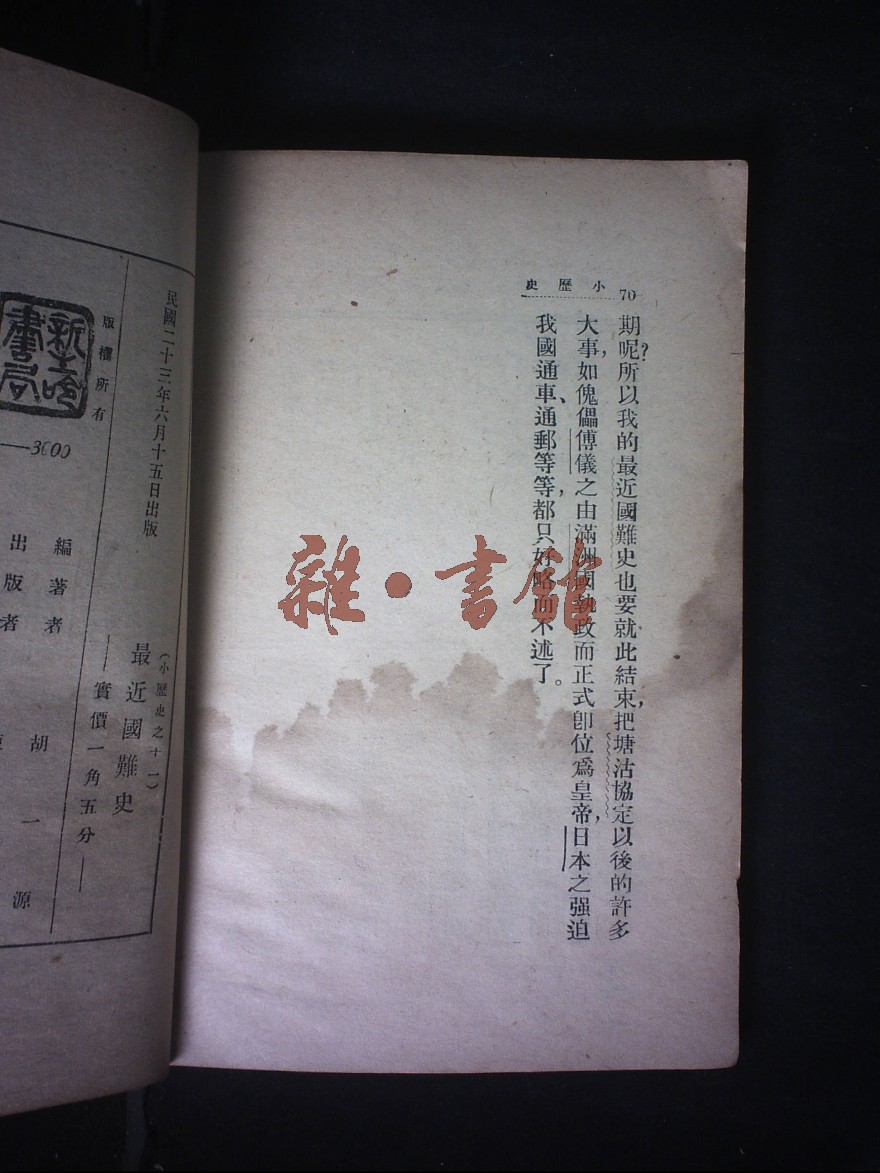 小歷史
70
期呢?所以我的最近國難史也要就此結束,把塘沽協定以後的許多
大事,如傀儡傅儀之由滿洲國執政而正式卽位爲皇帝,日本之强迫
我國通車、通郵等等,都只好略而不述了。
雜·書館
民國二十三年六月十五日出版
(小歷史之十一)
最近國難史
實價一角五分
版權所有
編著者 胡一源
出版者
書局
3000